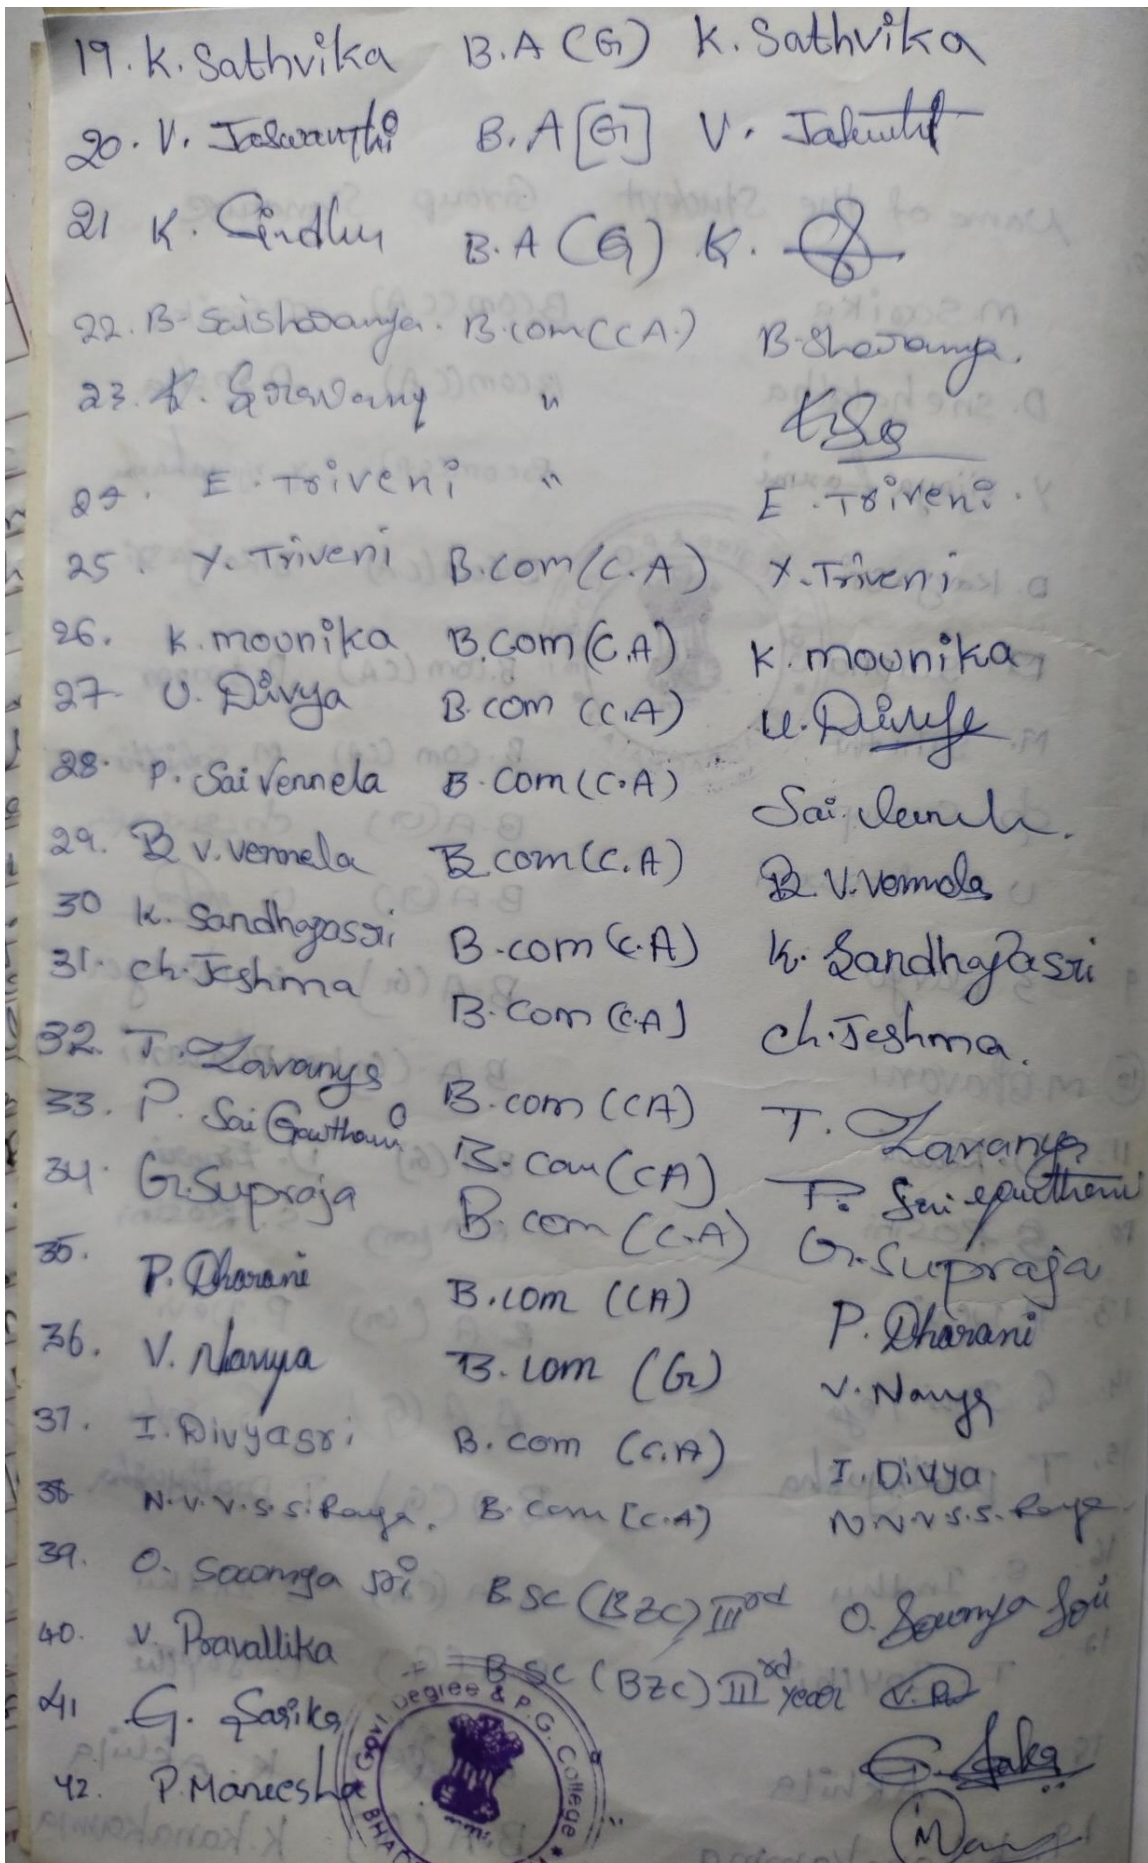 19. K. Sathvika B.A (G) K. Sathvika
20. V. Jaswanthi B.A [G] V.
21 K. Sindhu B.A (G) K.
22. B. Saishravanya. B.com (CA.) B. Shravanya.
23. K. Sravany "
24. E. Triveni " E. Triveni.
25. Y. Triveni B.com (C.A) Y. Triveni
26. K. mounika B.com (C.A) K. mounika
27 U. Divya B.com (C.A) U. Divya
28. P. Sai Vennela B.com (C.A) Sai.
29. B. V. vennela B.com (C.A) B. V. Vennela
30 K. Sandhyasri B.com (C.A) K. Sandhyasri
31. Ch. Jeshma B.com (C.A) Ch. Jeshma.
32. T. Lavanya B.com (CA) T. Lavanya
33. P. Sai Gowthami B.com (CA) P. Sai Gowthami
34. G. Supraja B.com (C.A) G. Supraja
35. P. Dharani B.com (CA) P. Dharani
36. V. Navya B.com (G) V. Navya
37. I. Divyasri B.com (C.A) I. Divya
38 N.V.V.S.S. B.com [C.A] N.V.V.S.S.
39. O. Sowmya sri BSC (BZC) IIIrd O. Sowmya Sri
40. V. Pravallika BSC (BZC) IIIrd year V.P
41 G. Sarika G.
42. P. Maneesha
Govt. Degree & P.G. College